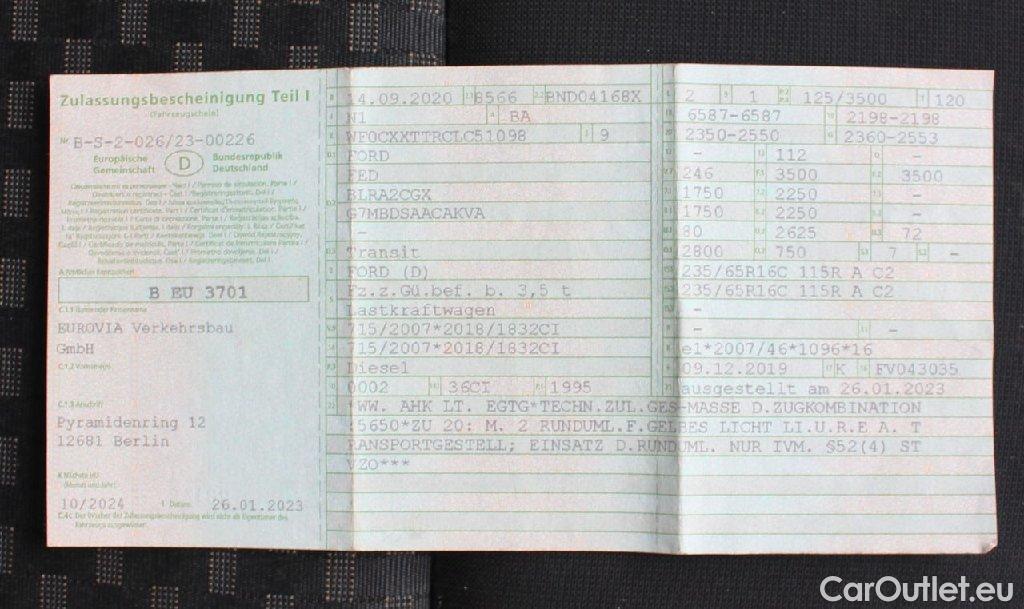 Zulassungsbescheinigung Teil I
(Fahrzeugschein)
Nr. B-S-2-026/23-00226
Europäische Gemeinschaft
D
Bundesrepublik Deutschland
B EU 3701
EUROVIA Verkehrsbau
GmbH
C.1.2 Vorname(n)
C.1.3 Anschrift
Pyramidenring 12
12681 Berlin
10/2024 I Datum 26.01.2023
C.4c Der Inhaber der Zulassungsbescheinigung wird nicht als Eigentümer des
Fahrzeugs ausgewiesen.
14.09.2020 8566 BND04168X
N1 BA
WF0CXXTTRCLC51098 9
FORD
FED
BLRA2CGX
G7MBDSAACAKVA
-
Transit
FORD (D)
Fz.z.Gü.bef. b. 3,5 t
Lastkraftwagen
715/2007*2018/1832CI
715/2007*2018/1832CI
Diesel
0002 36CI 1995
2 1 125/3500 120
6587-6587 2198-2198
2350-2550 2360-2553
- 112 -
246 3500 3500
1750 2250 -
1750 2250 -
80 2625 72
2800 750 7 -
235/65R16C 115R A C2
235/65R16C 115R A C2
-
- -
e1*2007/46*1096*16
09.12.2019 K FV043035
ausgestellt am 26.01.2023
*WW. AHK LT. EGTG*TECHN.ZUL.GES-MASSE D.ZUGKOMBINATION
:5650*ZU 20: M. 2 RUNDUML.F.GELBES LICHT LI.U.RE A. T
RANSPORTGESTELL; EINSATZ D.RUNDUML. NUR IVM. §52(4) ST
VZO***
CarOutlet.eu